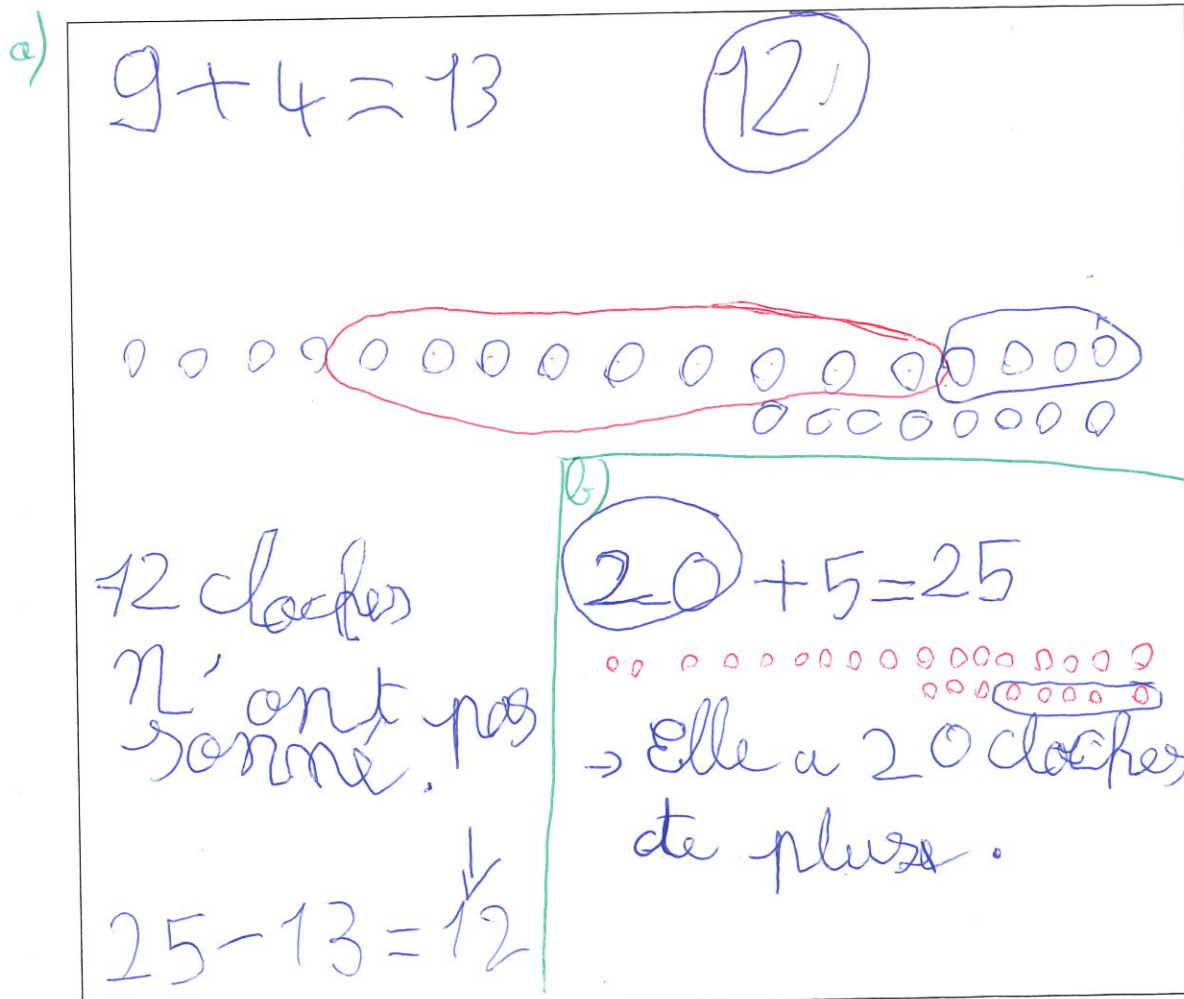 a)
9 + 4 = 13
12
12 cloches
n'ont pas
sonné.
25 - 13 = 12
b)
20 + 5 = 25
→ Elle a 20 cloches
de plus.